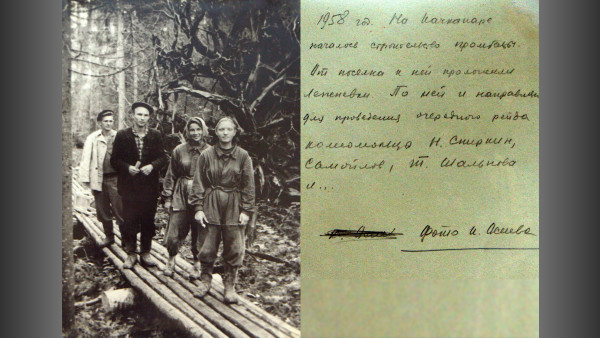 1958 год. На Качканаре
началось строительство промбазы.
От поселка к ней проложили
Лежневки. По ней и направились
для проведения очередного рейда
комсомольца Н. Спиркин,
Самойлов, Т. Шальнова
и...
Фото И. Асеева